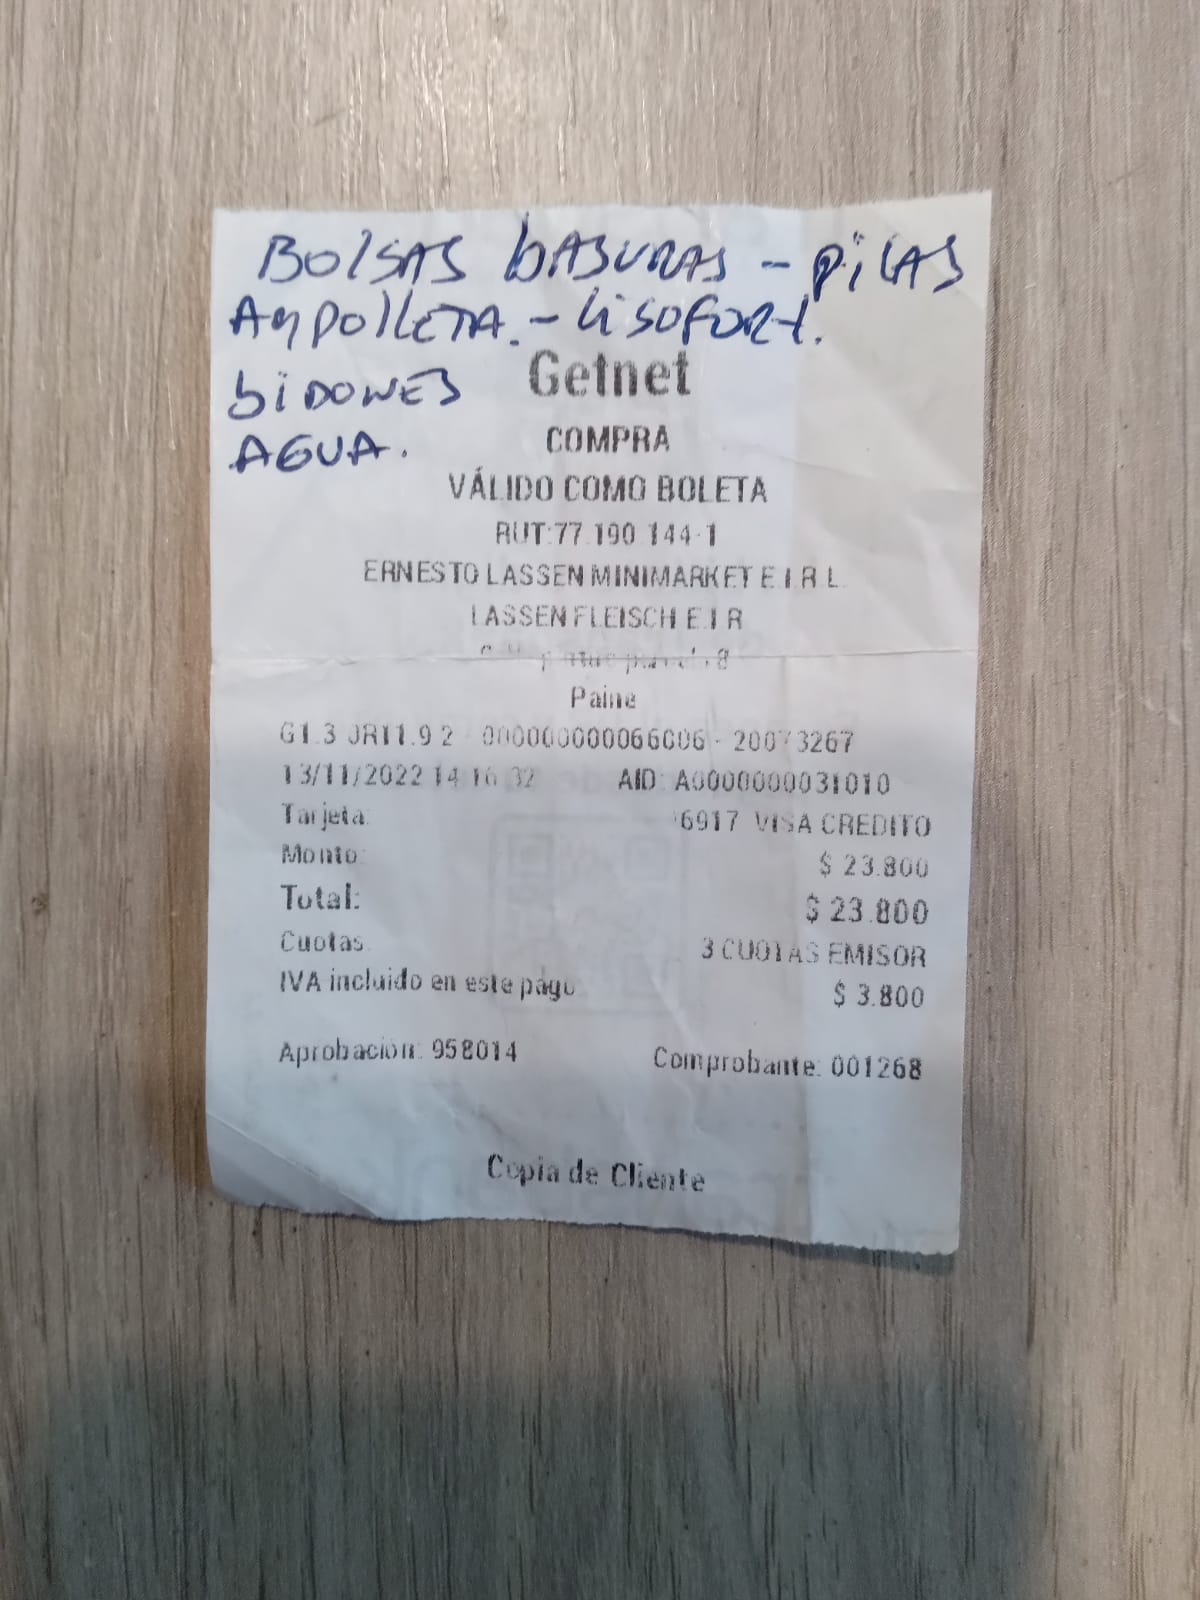 BOLSAS bASURAS - PiLAS
AMPOLLETA. - LiSOFORT.
biDONES
AGUA.
Getnet
COMPRA
VÁLIDO COMO BOLETA
RUT:77.190.144-1
ERNESTO LASSEN MINIMARKET E.I.R.L.
LASSEN FLEISCH E.I.R
8
Paine
000000000066006 - 20073267
13/11/2022 14:16:32 AID: A0000000031010
Tarjeta: *6917 VISA CREDITO
Monto: $ 23.800
Total: $ 23.800
Cuotas: 3 CUOTAS EMISOR
IVA incluido en este pago: $ 3.800
Aprobación: 958014 Comprobante: 001268
Copia de Cliente